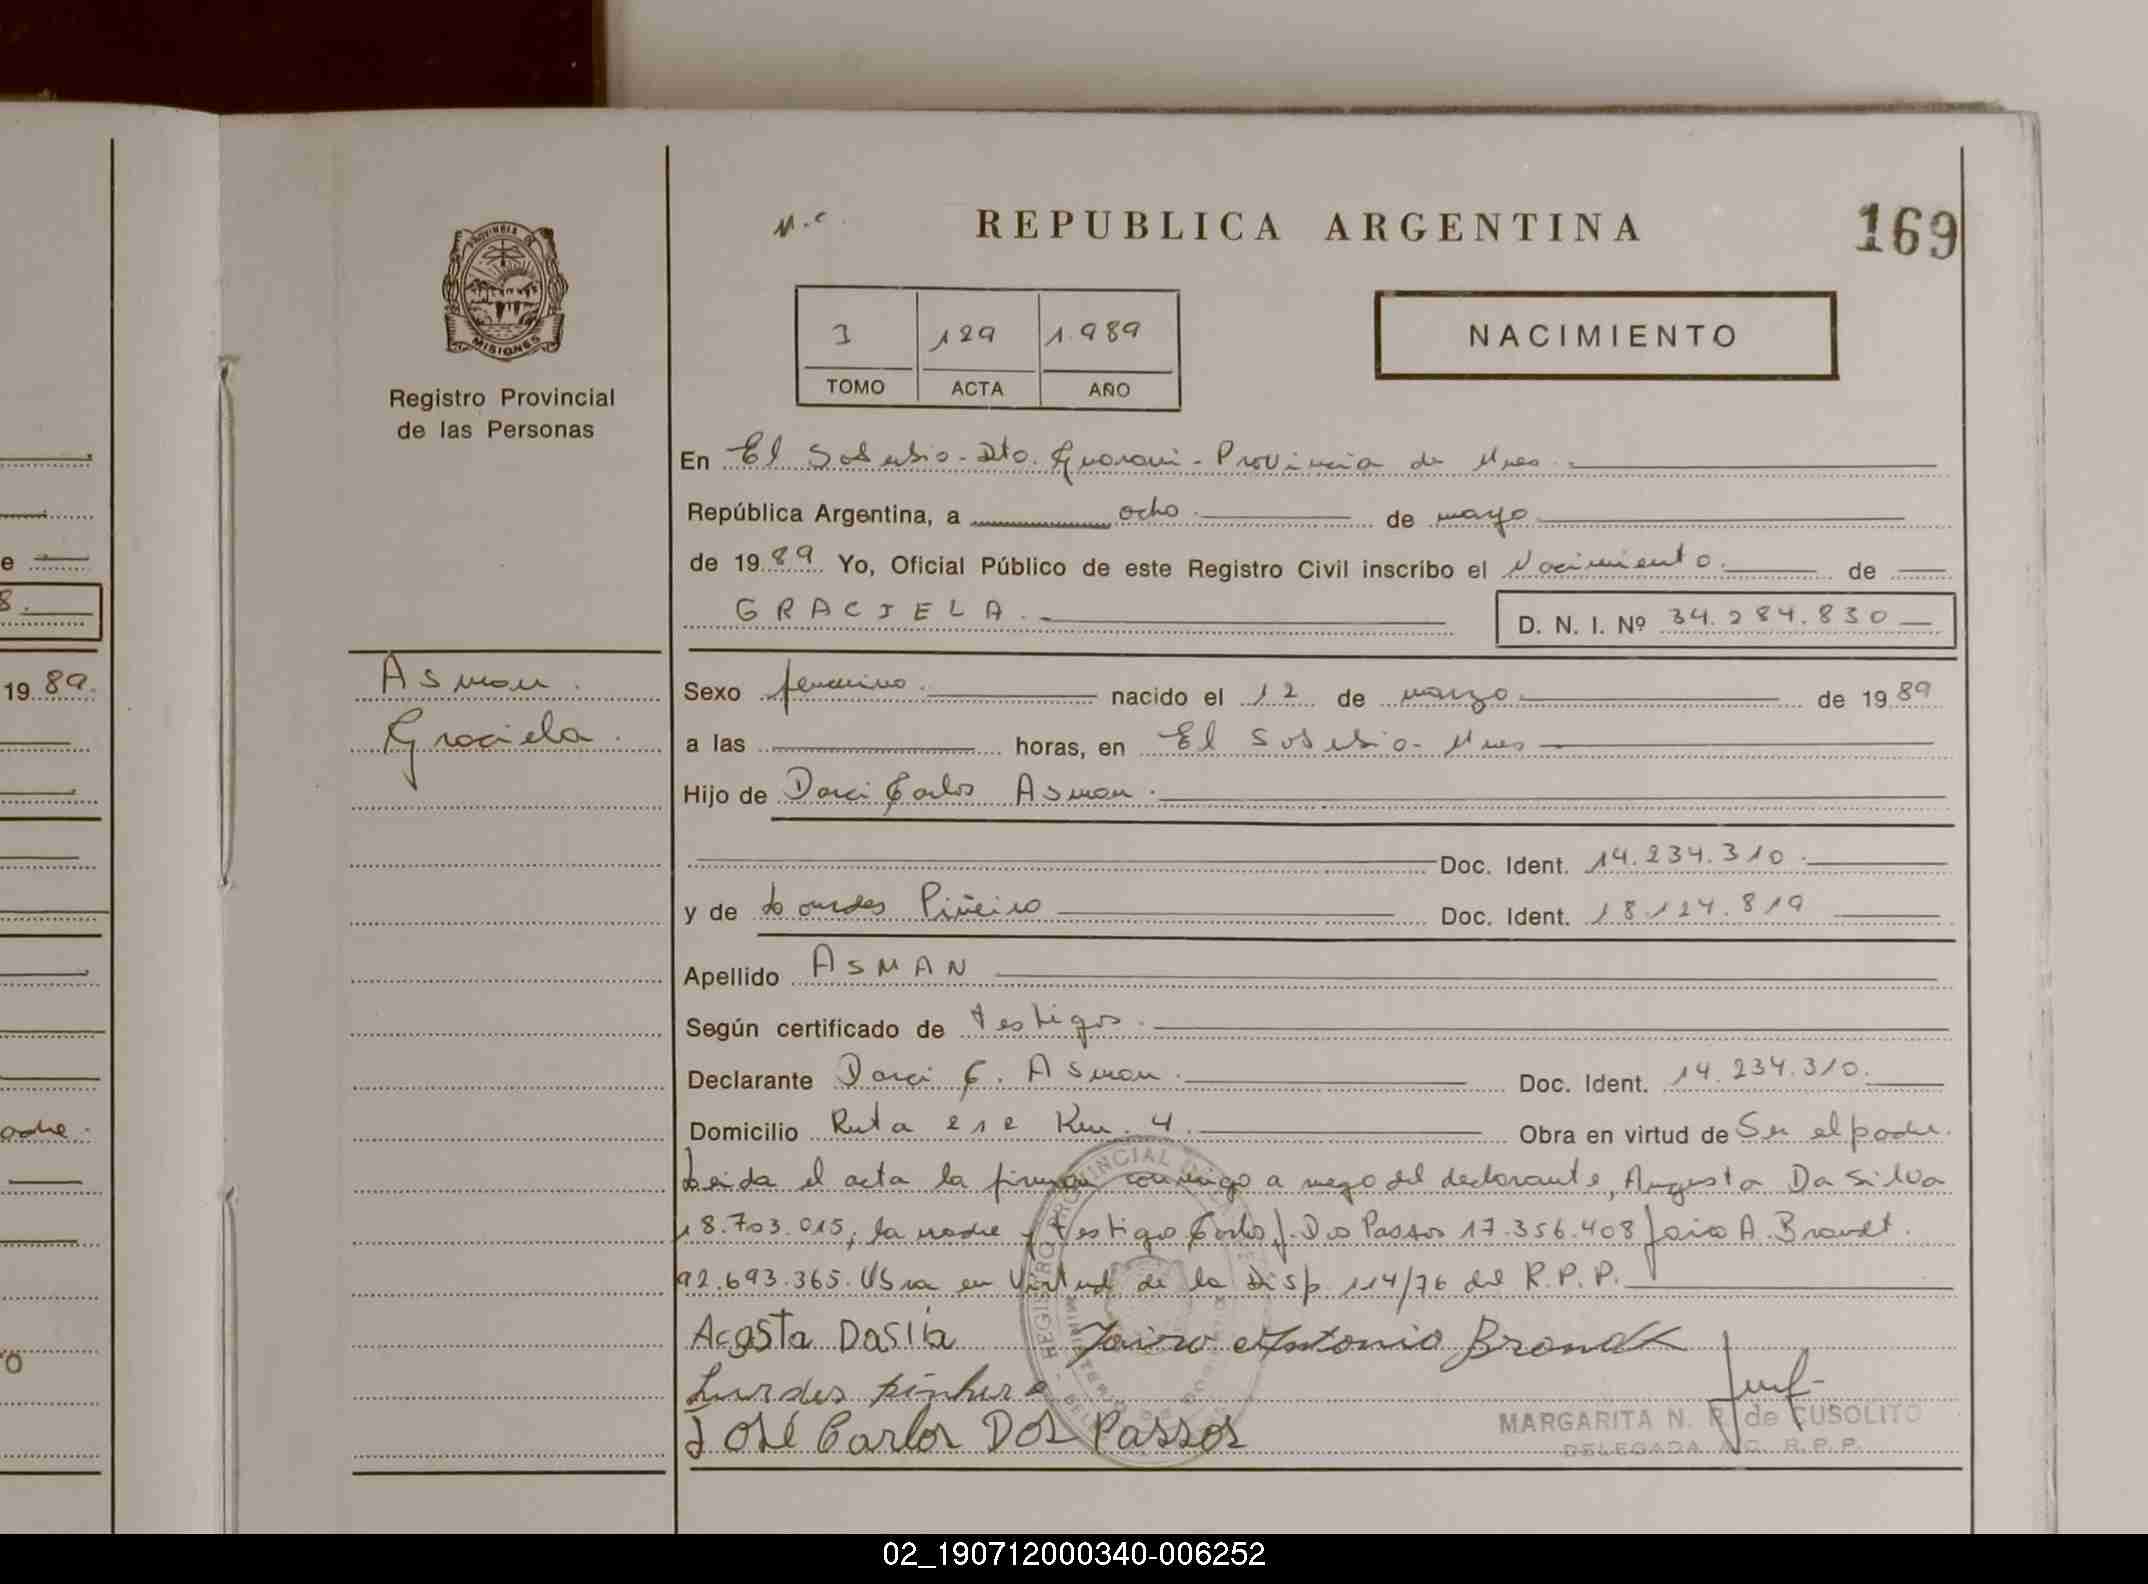 M.C.
REPUBLICA ARGENTINA
169
PROVINCIA DE
MISIONES
Registro Provincial
de las Personas
I 129 1.989
TOMO ACTA AÑO
NACIMIENTO
En El Soberbio-Dto. Guarani-Provincia de Mnes.
República Argentina, a ocho de mayo
de 1989 Yo, Oficial Público de este Registro Civil inscribo el Nacimiento. de
GRACIELA. D. N. I. Nº 34.284.830
Asman.
Graciela.
Sexo femenino. nacido el 12 de marzo de 1989
a las horas, en El Soberbio-Mnes
Hijo de Darci Carlos Asman.
Doc. Ident. 14.234.310.
y de Lourdes Piñeiro Doc. Ident. 18.124.819
Apellido ASMAN
Según certificado de testigos.
Declarante Darci C. Asman. Doc. Ident. 14.234.310.
Domicilio Ruta 212 Km. 4. Obra en virtud de Ser el padre.
Leida el acta la firman conmigo a ruego del declarante, Augusta Da Silva
18.703.015, la madre y testigo Carlos J. Dos Passos 17.356.408 Jairo A. Brandt.
92.693.365. US na en Virtud de la Disp. 114/76 del R.P.P.
Acosta Daslia Jairo Antonio Brondt
Lurdes pinhero
José Carlos Dos Passos
MARGARITA N. R. de CUSOLITO
DELEGADA R.P.P.
8.
1989.
adre.
02_190712000340-006252